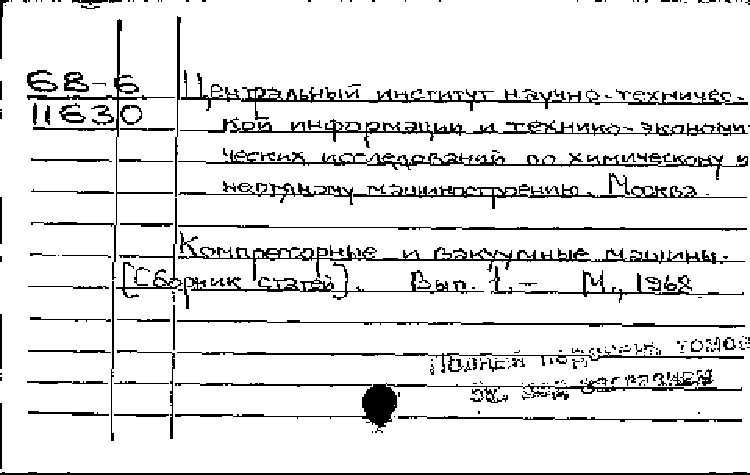 68-6
11630
Центральный институт научно-техничес-
кой информации и технико-экономи
ческих исследований по химическому и
нефтяному машиностроению. Москва.
Компрессорные и вакуумные машины.
[Сборник статей]. Вып. 1. - М., 1962
Полный перечень томов
см. под заглавием